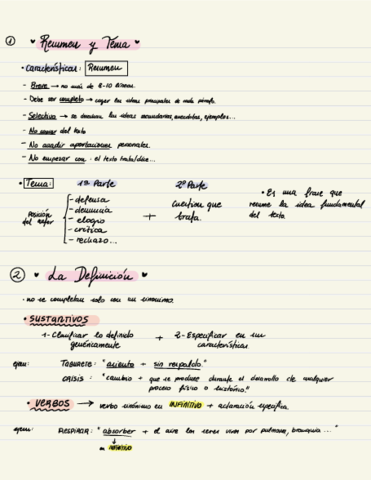 ① ♥ Resumen y Tema ♥
• Características: Resumen
- Breve → no más de 8-10 líneas
- Debe ser completo → coger las ideas principales de cada párrafo.
- Selectivo → se descartan las ideas secundarias, anécdotas, ejemplos...
- No copiar del texto
- No añadir aportaciones personales.
- No empezar con: el texto trata/dice...
• Tema: 1ª Parte 2ª Parte • Es una frase que
Posición del autor { - defensa cuestión que resume la idea fundamental
- denuncia + trata. del texto
- elogio
- crítica
- rechazo...
② ♥ La Definición ♥
• no se completan solo con un sinónimo
• SUSTANTIVOS
1- Clasificar lo definido + 2- Especificar en sus
genéricamente características.
ejem: TABURETE: "asiento + sin respaldo."
CRISIS: "cambio + que se produce durante el desarrollo de cualquier
proceso físico o histórico."
• VERBOS → verbo sinónimo en INFINITIVO + aclaración específica.
ejem: RESPIRAR: "absorber + el aire los seres vivos por pulmones, branquia..."
↓
en INFINITIVO